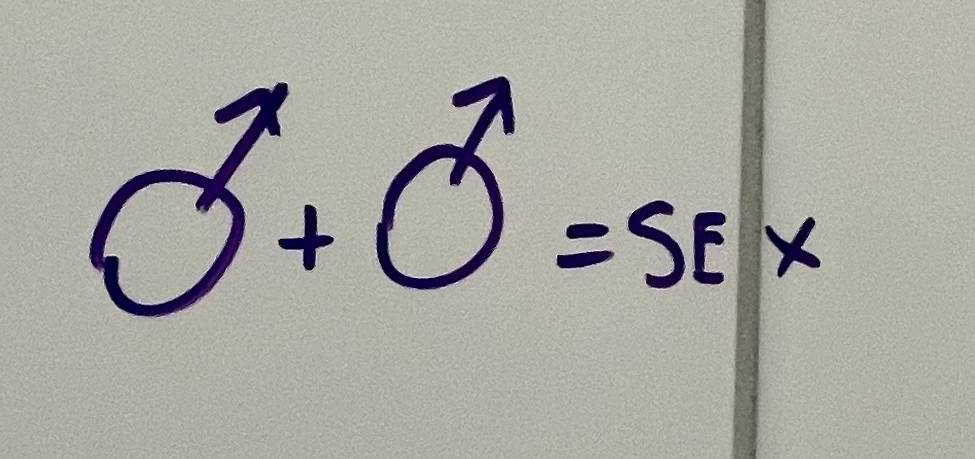 ♂ + ♂ = SEX